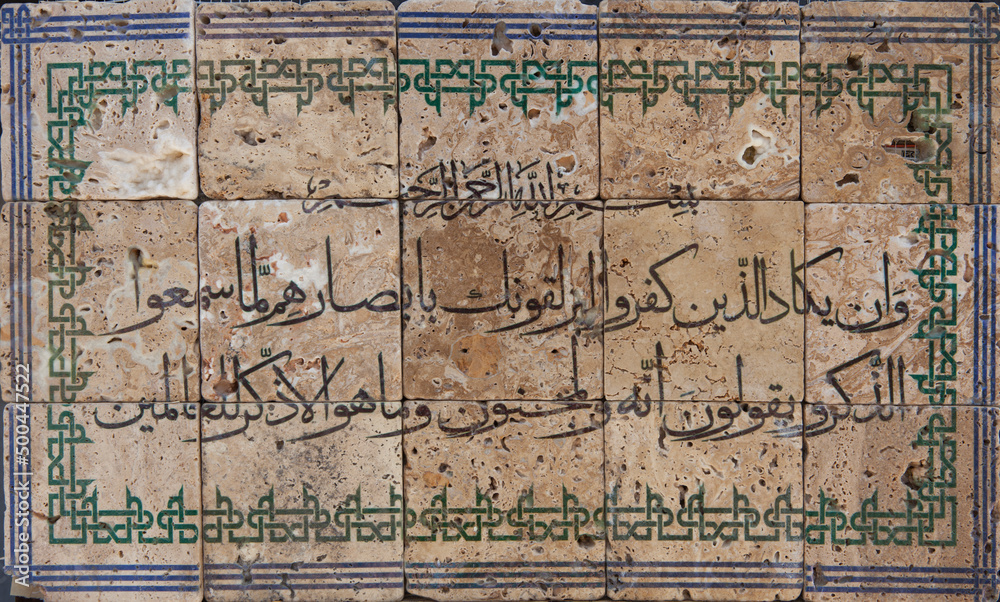 بسم الله الرحمن الرحيم
وان يكاد الذين كفروا ليزلقونك بابصارهم لما سمعوا
الذكر و يقولون انه لمجنون وما هو الا ذكر للعالمين
Adobe Stock | #500447522